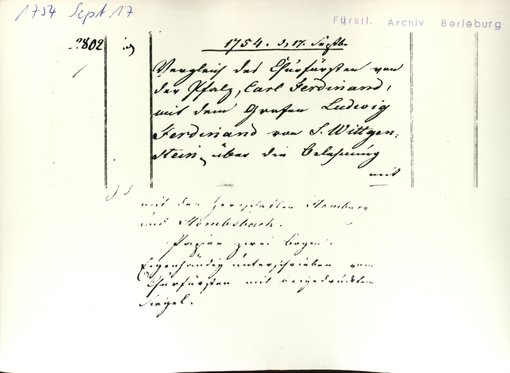 1754 Sept 17
Fürstl. Archiv Berleburg
2802
1754. d. 17. Septbr
Vergleich des Churfürsten von
der Pfalz, Carl Ferdinand,
mit dem Grafen Ludwig
Ferdinand von S. Wittgen-
stein, über die Belehnung
mit
mit den Herrschaften Homburg
und Mombsbach.
Papier zwei Bogen.
Eigenhändig unterschrieben vom
Churfürsten mit beigedrücktem
Siegel.